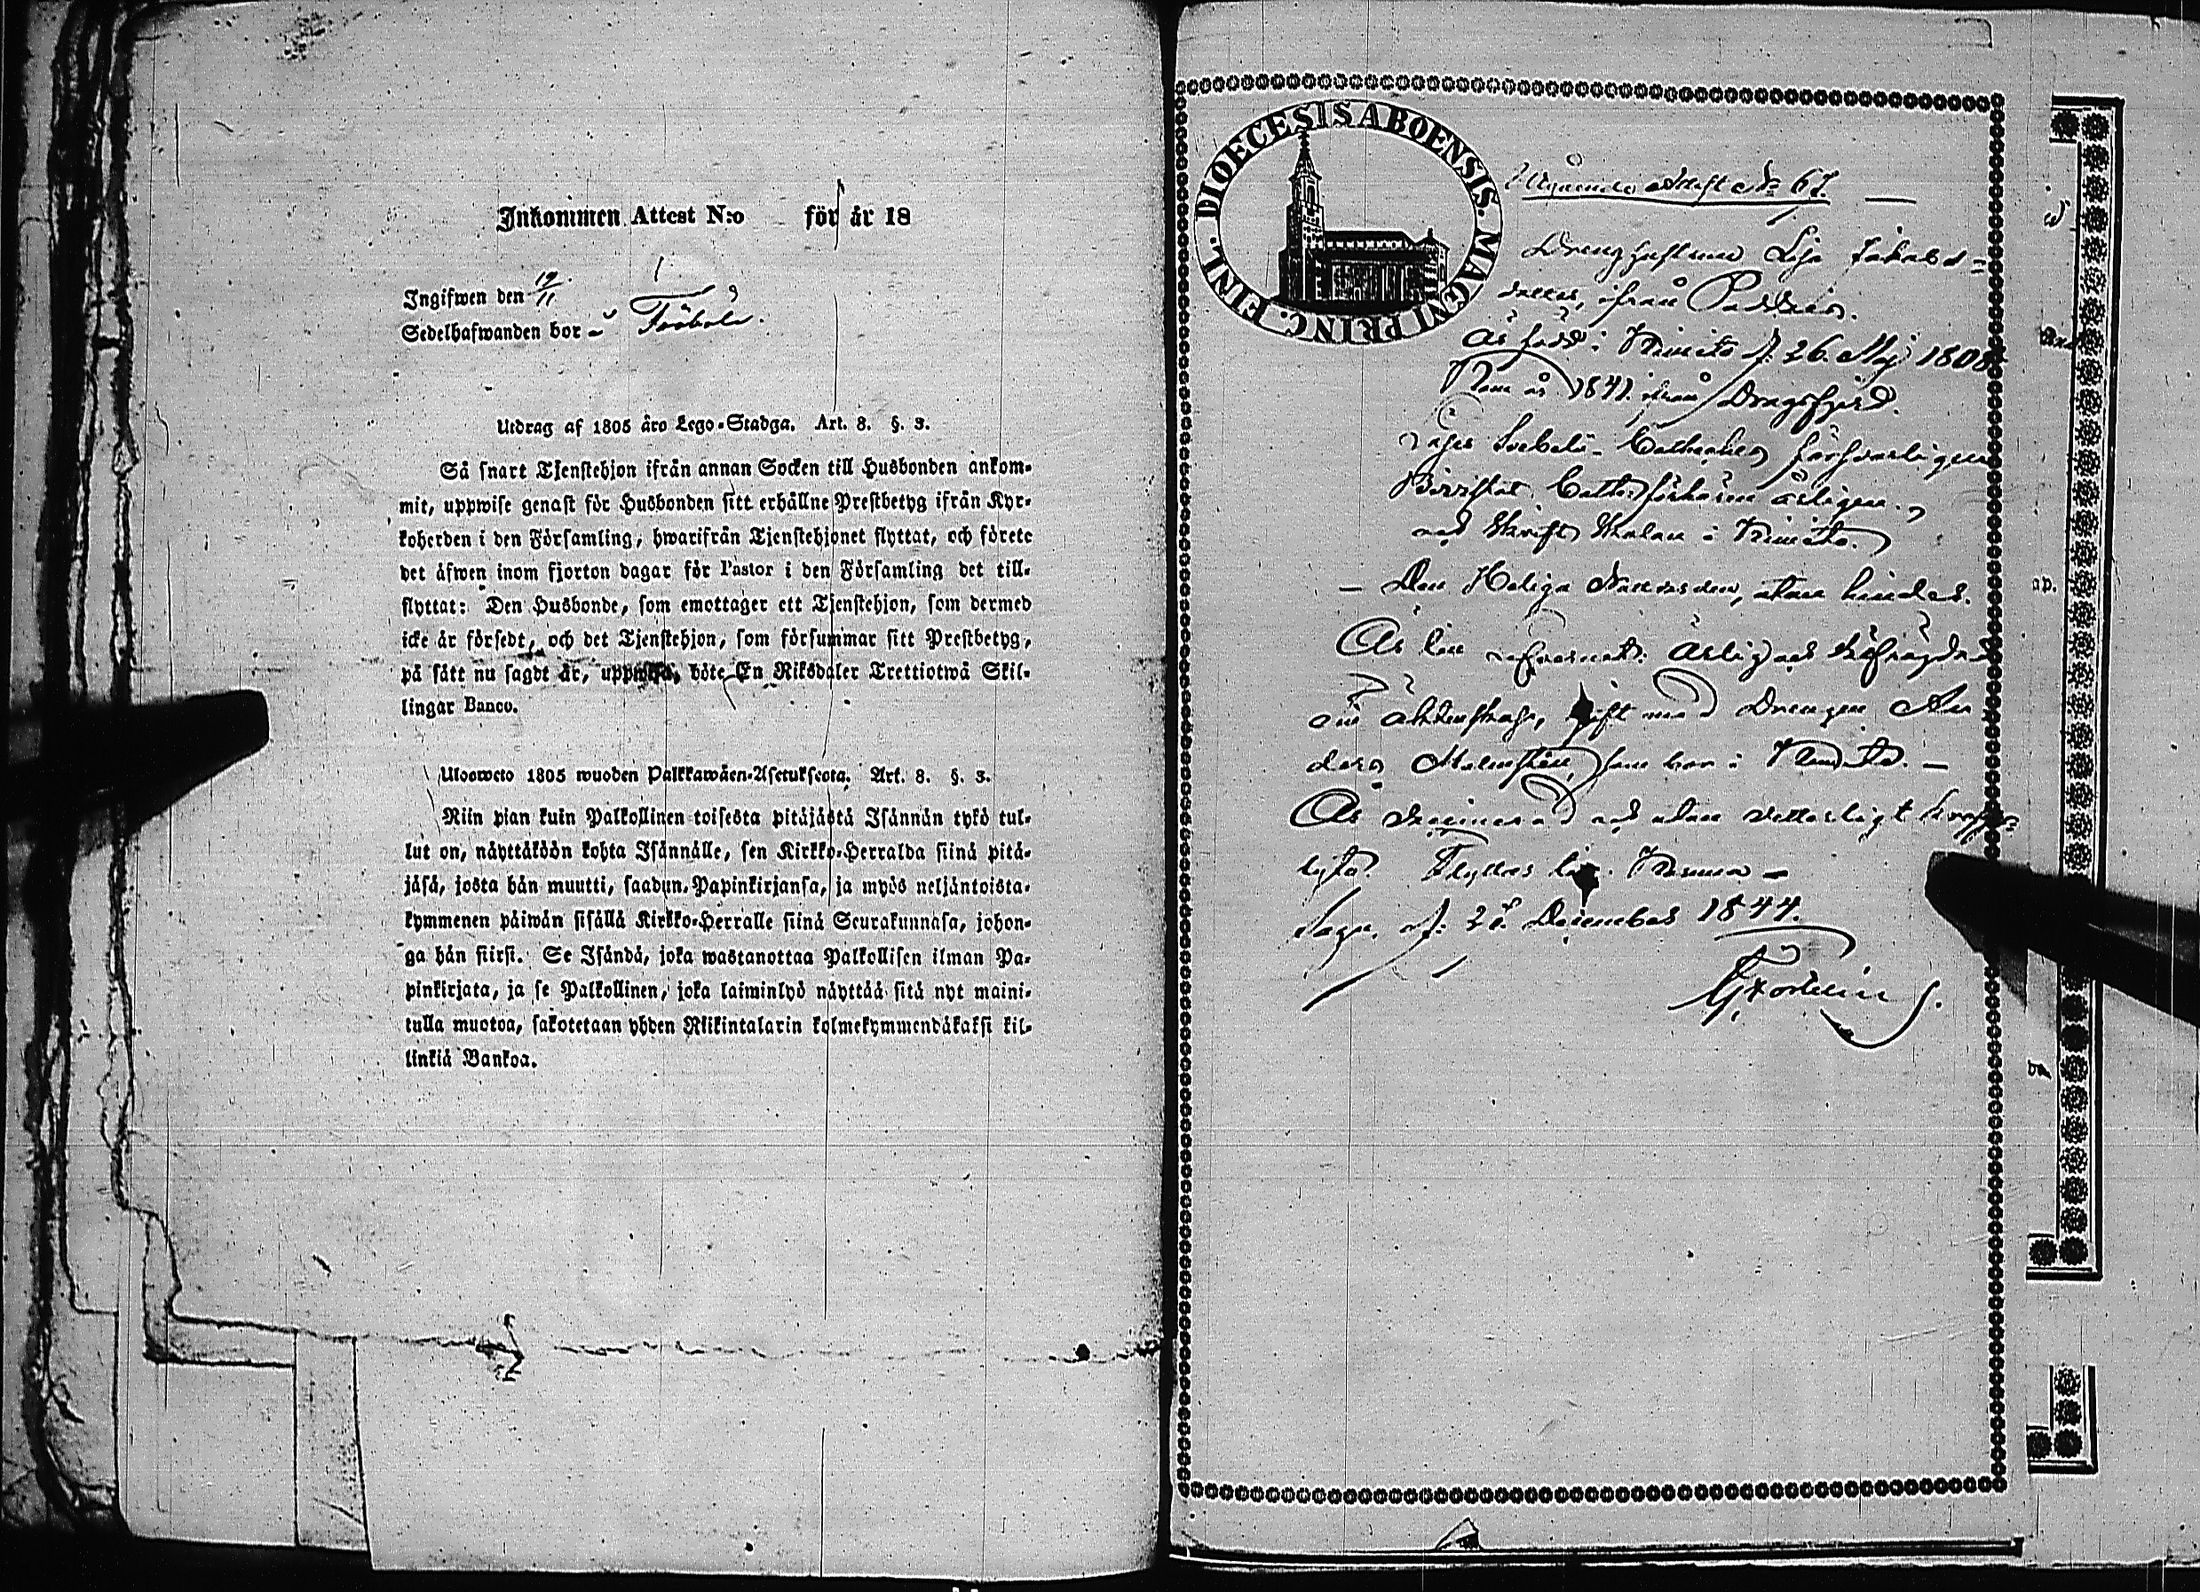 Inkommen Attest N:o för år 18
Ingifwen den 19/11
Sedelhafwanden bor i
Utdrag af 1805 års Lego-Stadga. Art. 8. §. 3.
Så snart Tjenstehjon ifrån annan Socken till Husbonden ankom-
mit, uppwise genast för Husbonden sitt erhållne Prestbetyg ifrån Kyr-
koherden i den Församling, hwarifrån Tjenstehjonet flyttat, och förete
det äfwen inom fjorton dagar för Pastor i den Församling det till-
flyttat: Den Husbonde, som emottager ett Tjenstehjon, som dermed
icke är försedt, och det Tjenstehjon, som försummar sitt Prestbetyg,
på sätt nu sagdt är, uppwisa, böte En Riksdaler Trettiotwå Skil-
lingar Banco.
Ulosweto 1805 wuoden Palkkawäen-Asetuksesta. Art. 8. §. 3.
Niin pian kuin Palkollinen toisesta pitäjästä Isännän tykö tul-
lut on, näyttäköön kohta Isännälle, sen Kirkko-Herralda siinä pitä-
jäsä, josta hän muutti, saadun Papinkirjansa, ja myös neljäntoista-
kymmenen päiwän sisällä Kirkko-Herralle siinä Seurakunnasa, johon-
ga hän siirsi. Se Isändä, joka wastanottaa Palkollisen ilman Pa-
pinkirjata, ja se Palkollinen, joka laiminlyö näyttää sitä nyt maini-
tulla muotoa, sakotetaan yhden Riikintalarin kolmekymmendäkaksi kil-
linkiä Bankoa.
DIOECESIS ABOENSIS. MAGNI PRINC. FINL.
Utgående Attest No 67.
Drenghustrun Lisa Jakobs-
dotter, ifrån
är född i Kimito d. 26 Maj 1808
Kom år 1841 ifrån Dragsfjerd.
Läser Svebelii Catheches försvarligen
Bivistat Catheches förhören årligen
och Skrift Skolan i Kimito.
– Den Heliga Nattvarden, utan hinder.
Är till Ärlig och
äktenskap, gift med Drengen An
ders Malmsten, som bor i Kimito. –
Är Vaccinerad och utan vetterligt kropps-
lyte. Flyttar till
Sagu d. 28 December 1844.